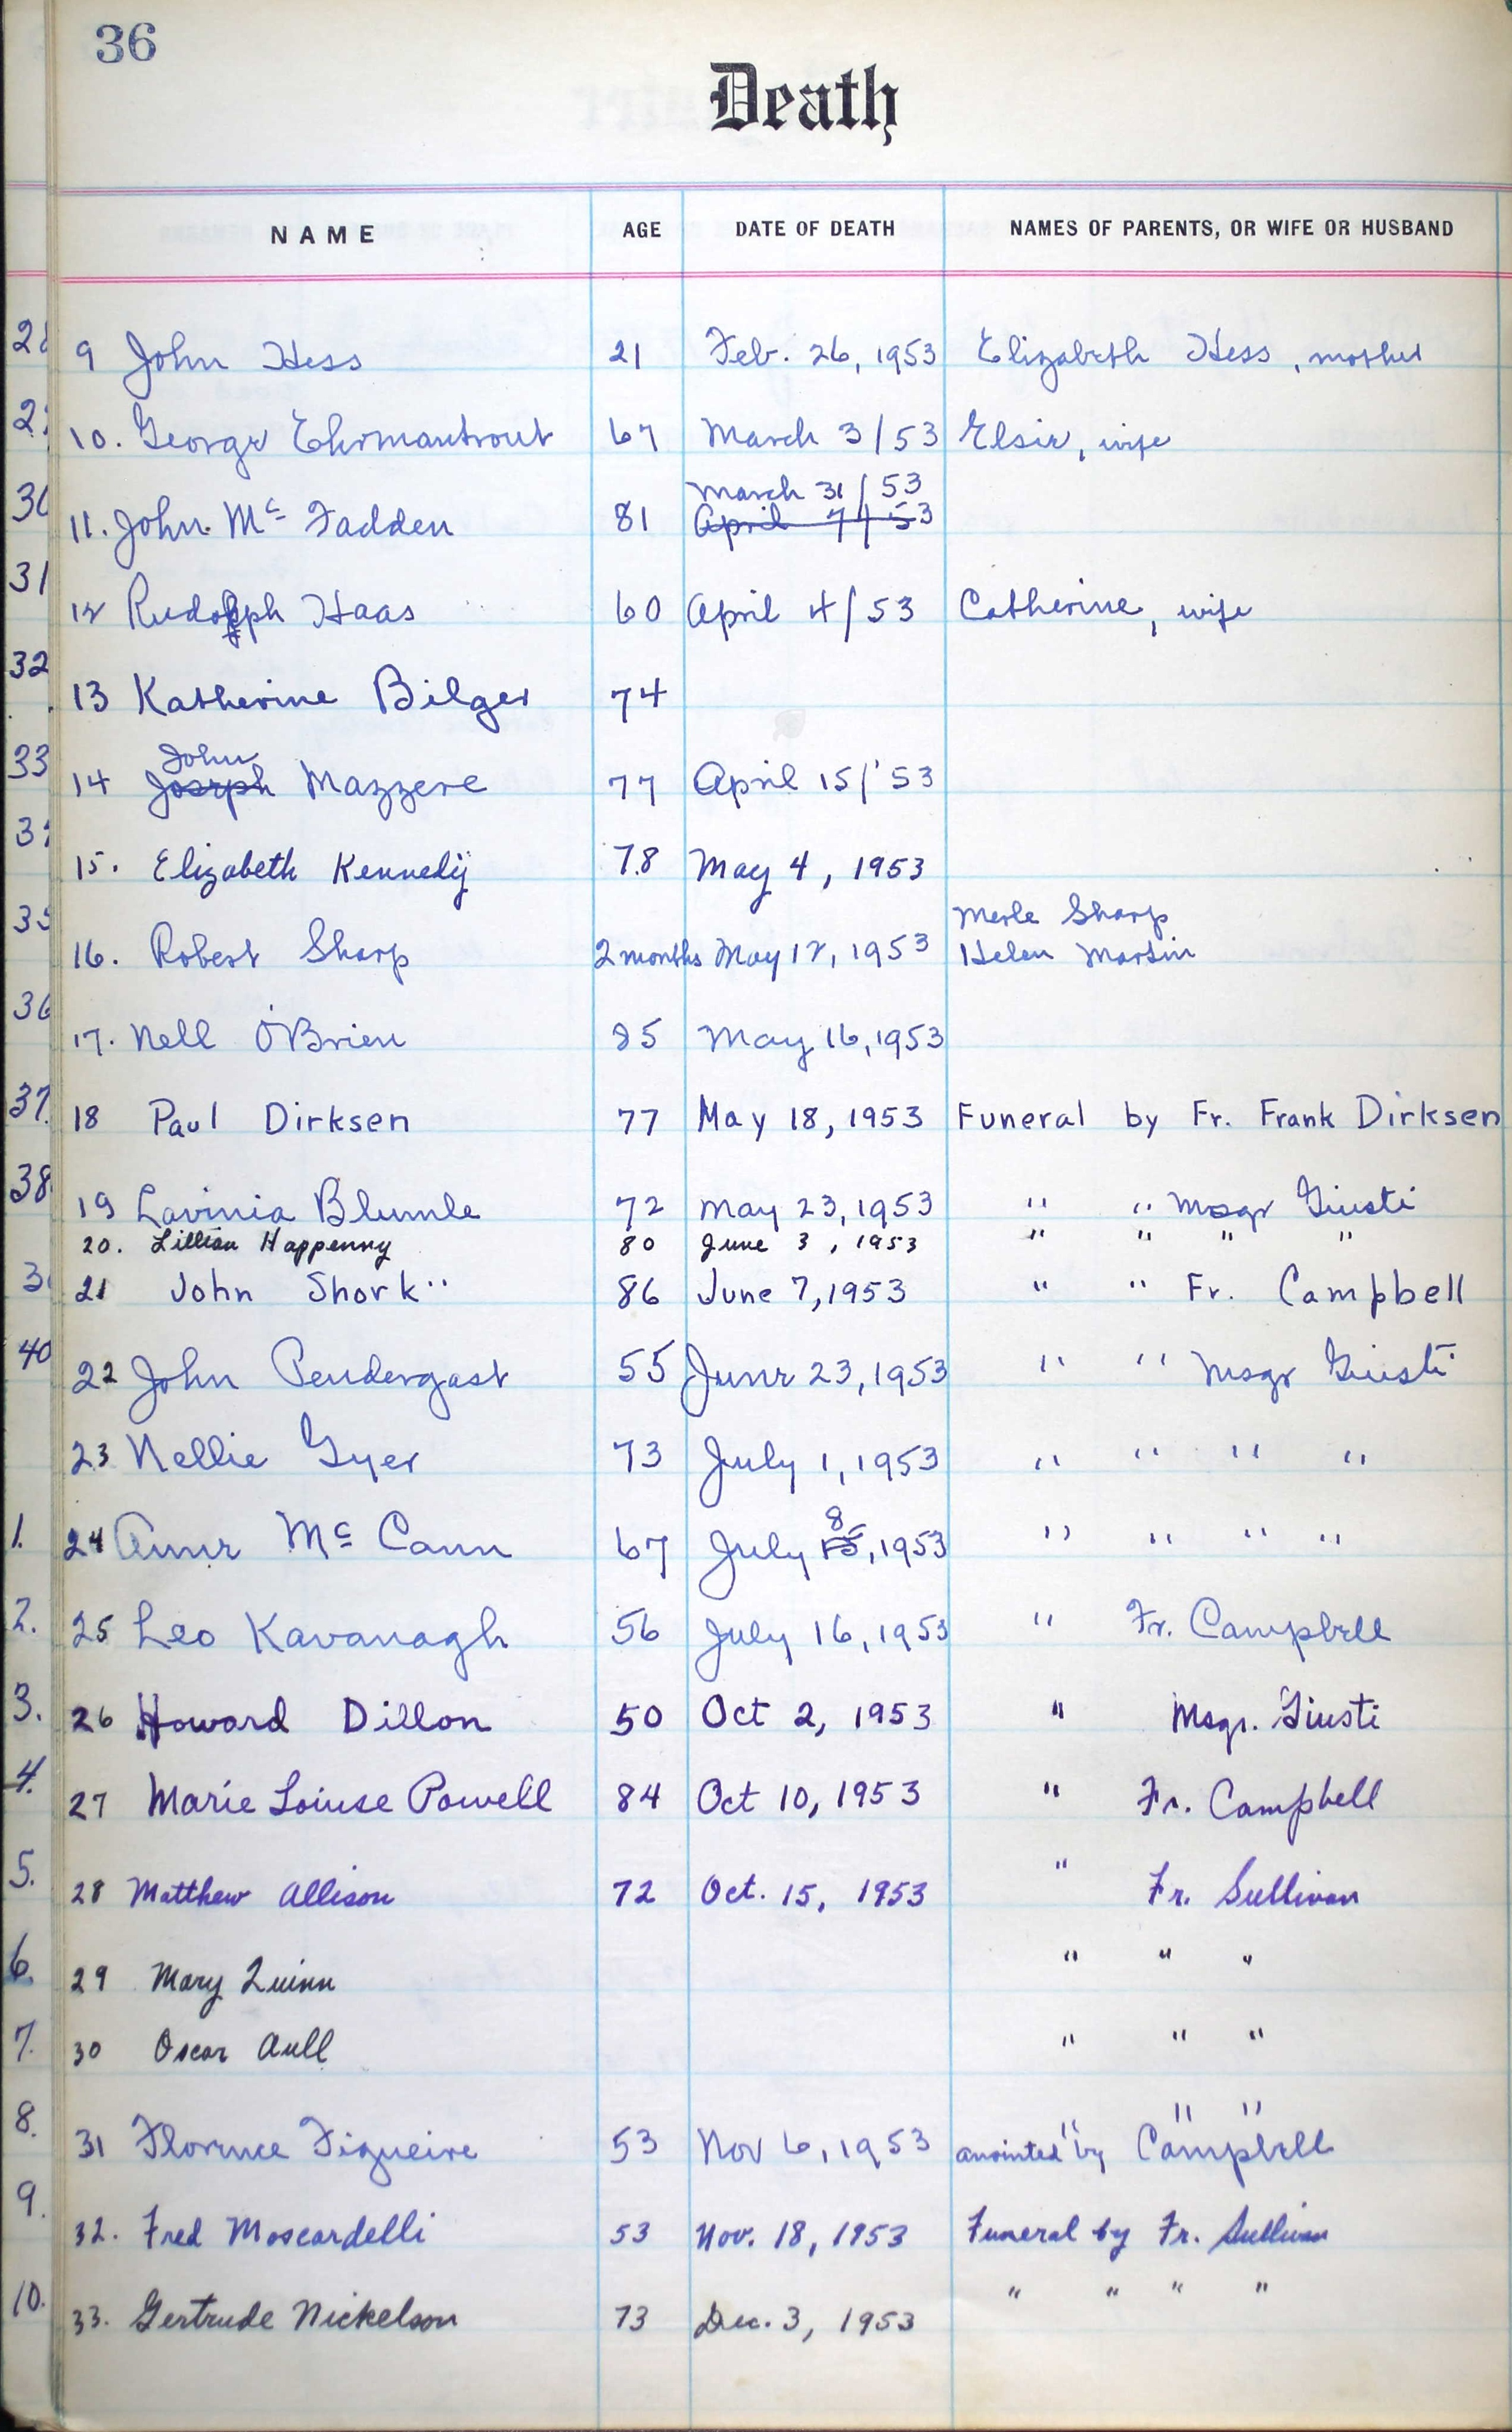 36
Death
NAME AGE DATE OF DEATH NAMES OF PARENTS, OR WIFE OR HUSBAND
9 John Hess 21 Feb. 26, 1953 Elizabeth Hess, mother
10. George Ehrmantrout 67 March 3/53 Elsie, wife
March 31/53
11. John Mc Fadden 81 April 7/53
12 Rudolph Haas 60 April 4/53 Catherine, wife
13 Katherine Bilger 74
John
14 Joseph Mazzere 77 April 15/'53
15. Elizabeth Kennedy 78 May 4, 1953
Merle Sharp
16. Robert Sharp 2 months May 12, 1953 Helen Martin
17. Nell O'Brien 85 May 16, 1953
18 Paul Dirksen 77 May 18, 1953 Funeral by Fr. Frank Dirksen
19 Lavinia Blumle 72 May 23, 1953 " " Msgr Giusti
20. Lillian Happenny 80 June 3, 1953 " " " "
21 John Shork 86 June 7, 1953 " " Fr. Campbell
22 John Pendergast 55 June 23, 1953 " " Msgr Giusti
23 Nellie Gyer 73 July 1, 1953 " " " "
8
24 Anne Mc Cann 67 July 15, 1953 " " " "
25 Leo Kavanagh 56 July 16, 1953 " Fr. Campbell
26 Howard Dillon 50 Oct 2, 1953 " Msgr. Giusti
27 Marie Loiuse Powell 84 Oct 10, 1953 " Fr. Campbell
28 Matthew Allison 72 Oct. 15, 1953 " Fr. Sullivan
29 Mary Quinn " " "
30 Oscar Aull " " "
" " "
31 Florence Figueire 53 Nov 6, 1953 anointed by Campbell
32. Fred Moscardelli 53 Nov. 18, 1953 Funeral by Fr. Sullivan
33. Gertrude Nickelson 73 Dec. 3, 1953 " " " "